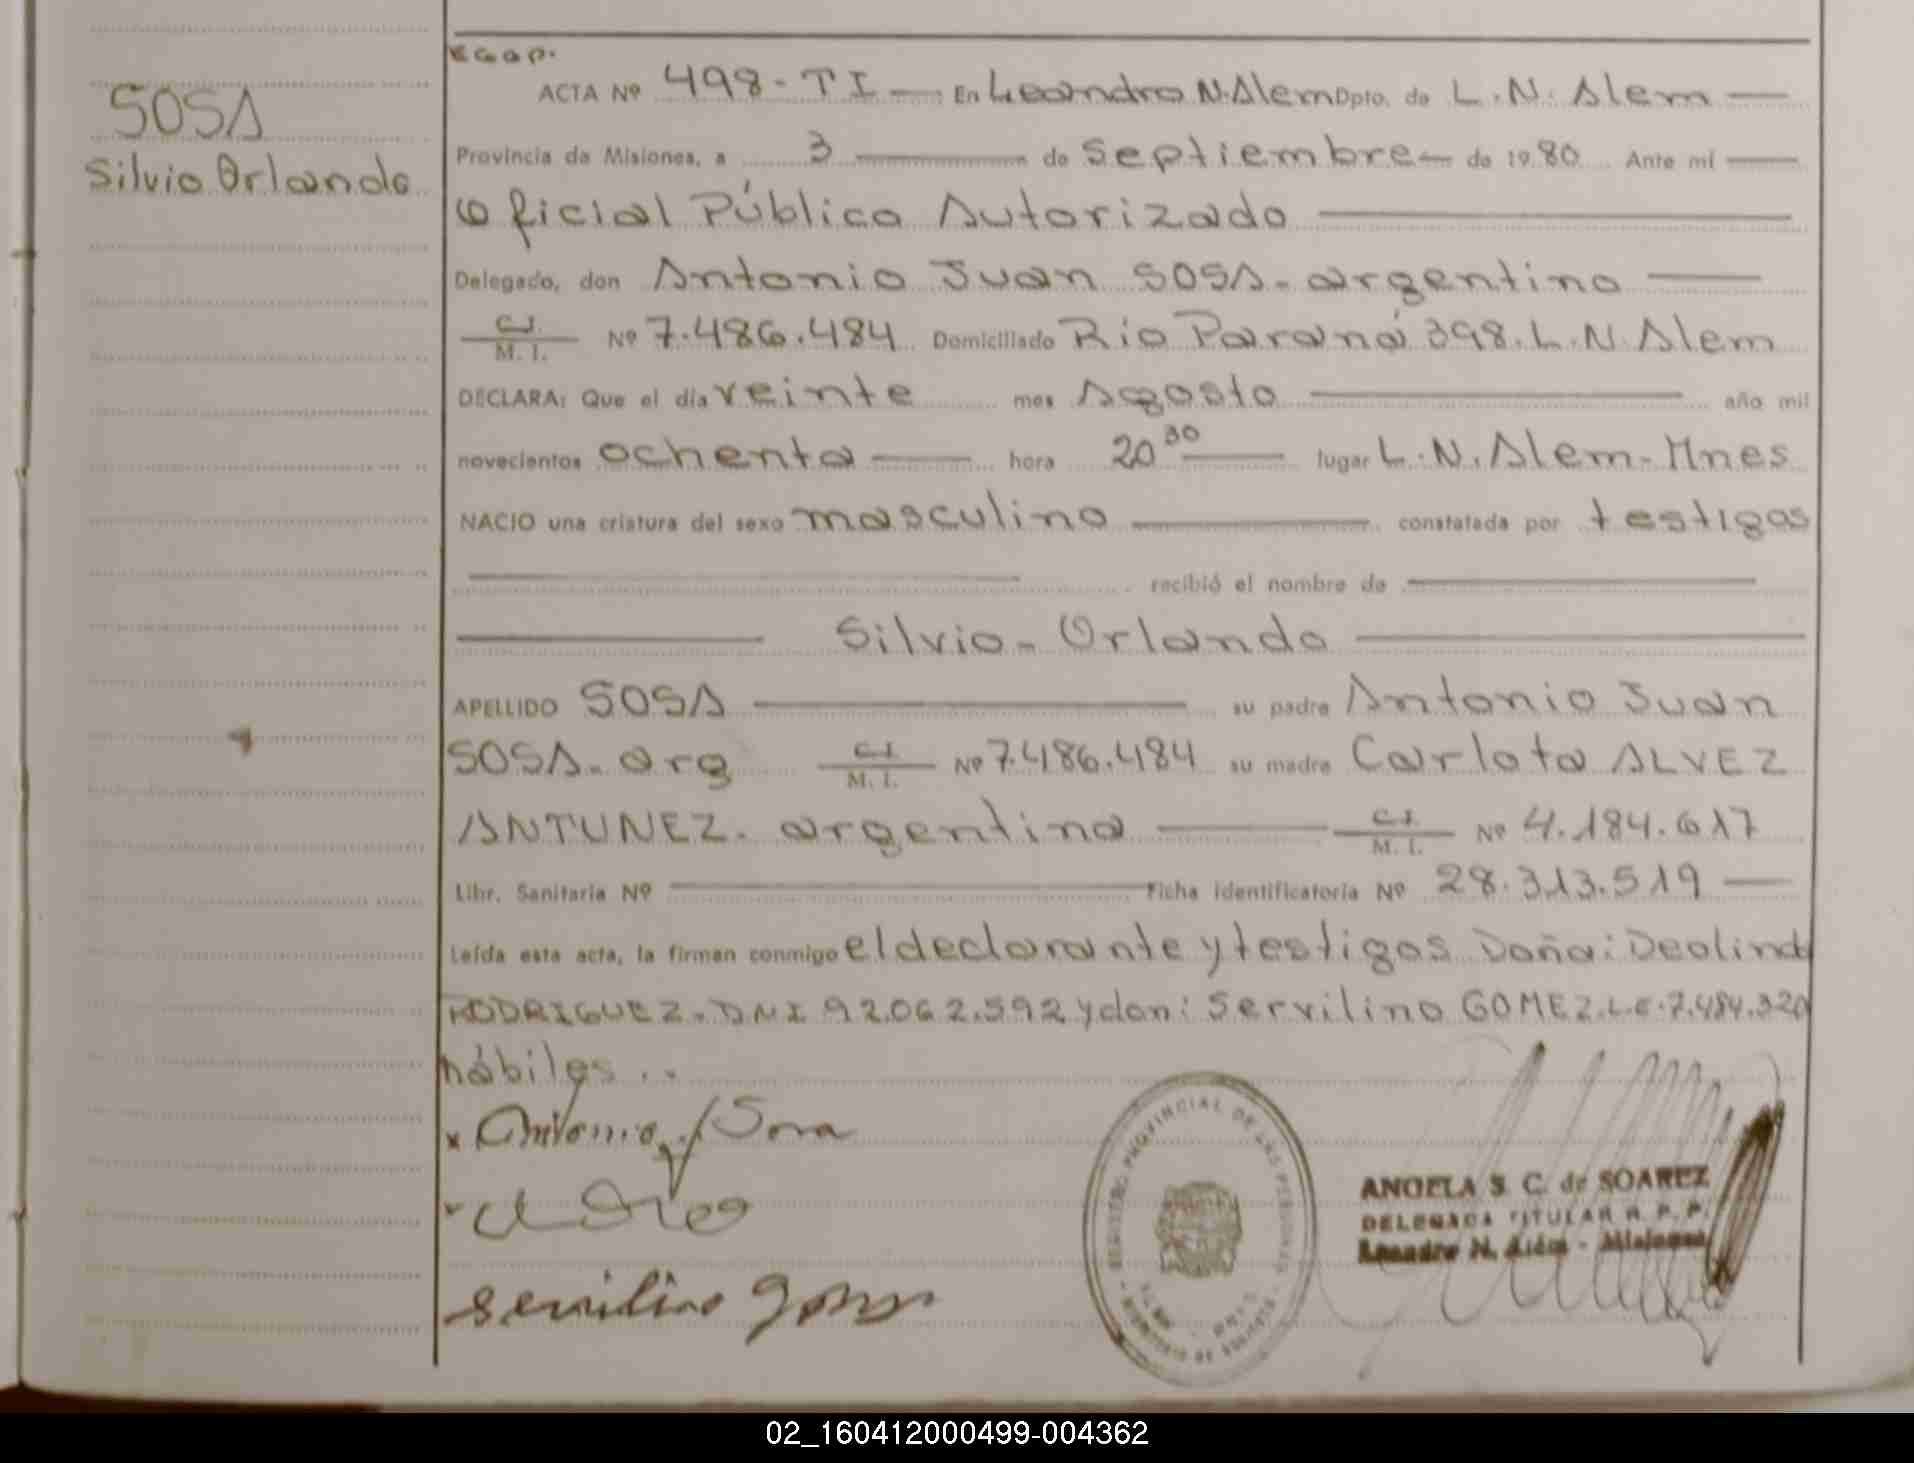 SOSA
Silvio Orlando
ACTA Nº 498-TI — En Leandro N. Alem Dpto. de L. N. Alem —
Provincia de Misiones, a 3 — de Septiembre — de 1980 Ante mí —
Oficial Público Autorizado —
Delegado, don Antonio Juan SOSA - argentino —
C.I. / M. I. Nº 7.486.484 Domiciliado Río Paraná 398. L. N. Alem
DECLARA: Que el día veinte mes Agosto — año mil
novecientos ochenta — hora 20 30 — lugar L. N. Alem - Mnes
NACIO una criatura del sexo masculino — constatada por testigos
— recibió el nombre de —
— Silvio - Orlando —
APELLIDO SOSA — su padre Antonio Juan
SOSA - arg C.I. / M. I. Nº 7.486.484 su madre Carlota ALVEZ
ANTUNEZ - argentina — C.I. / M. I. Nº 4.184.617
Libr. Sanitaria Nº — Ficha identificatoria Nº 28.313.519 —
Leída esta acta, la firman conmigo el declarante y testigos Doña: Deolinda
RODRIGUEZ - DNI 92.062.592 y don: Servilino GOMEZ. L.E. 7.484.320
hábiles..
x Antonio J Sosa
servilino gomez
REGISTRO PROVINCIAL DE LAS PERSONAS
ANGELA S. C. de SOAREZ
DELEGADA TITULAR R. P. P.
Leandro N. Alem - Misiones
02_160412000499-004362